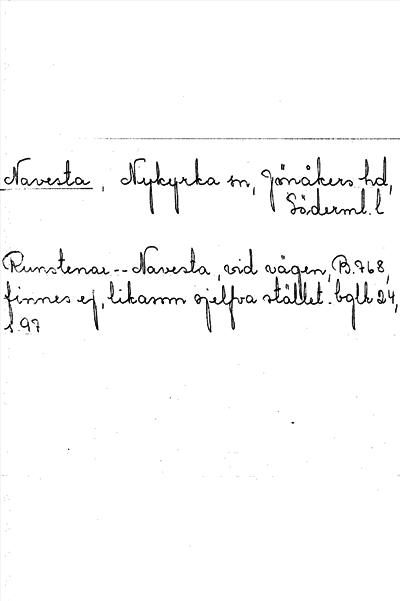 Navesta, Nykyrka sn, Jönåkers hd,
Söderml. l
Runstenar -- Navesta, vid vägen, B. 768,
finnes ej, likasom sjelfva stället. bglh 24,
s. 97